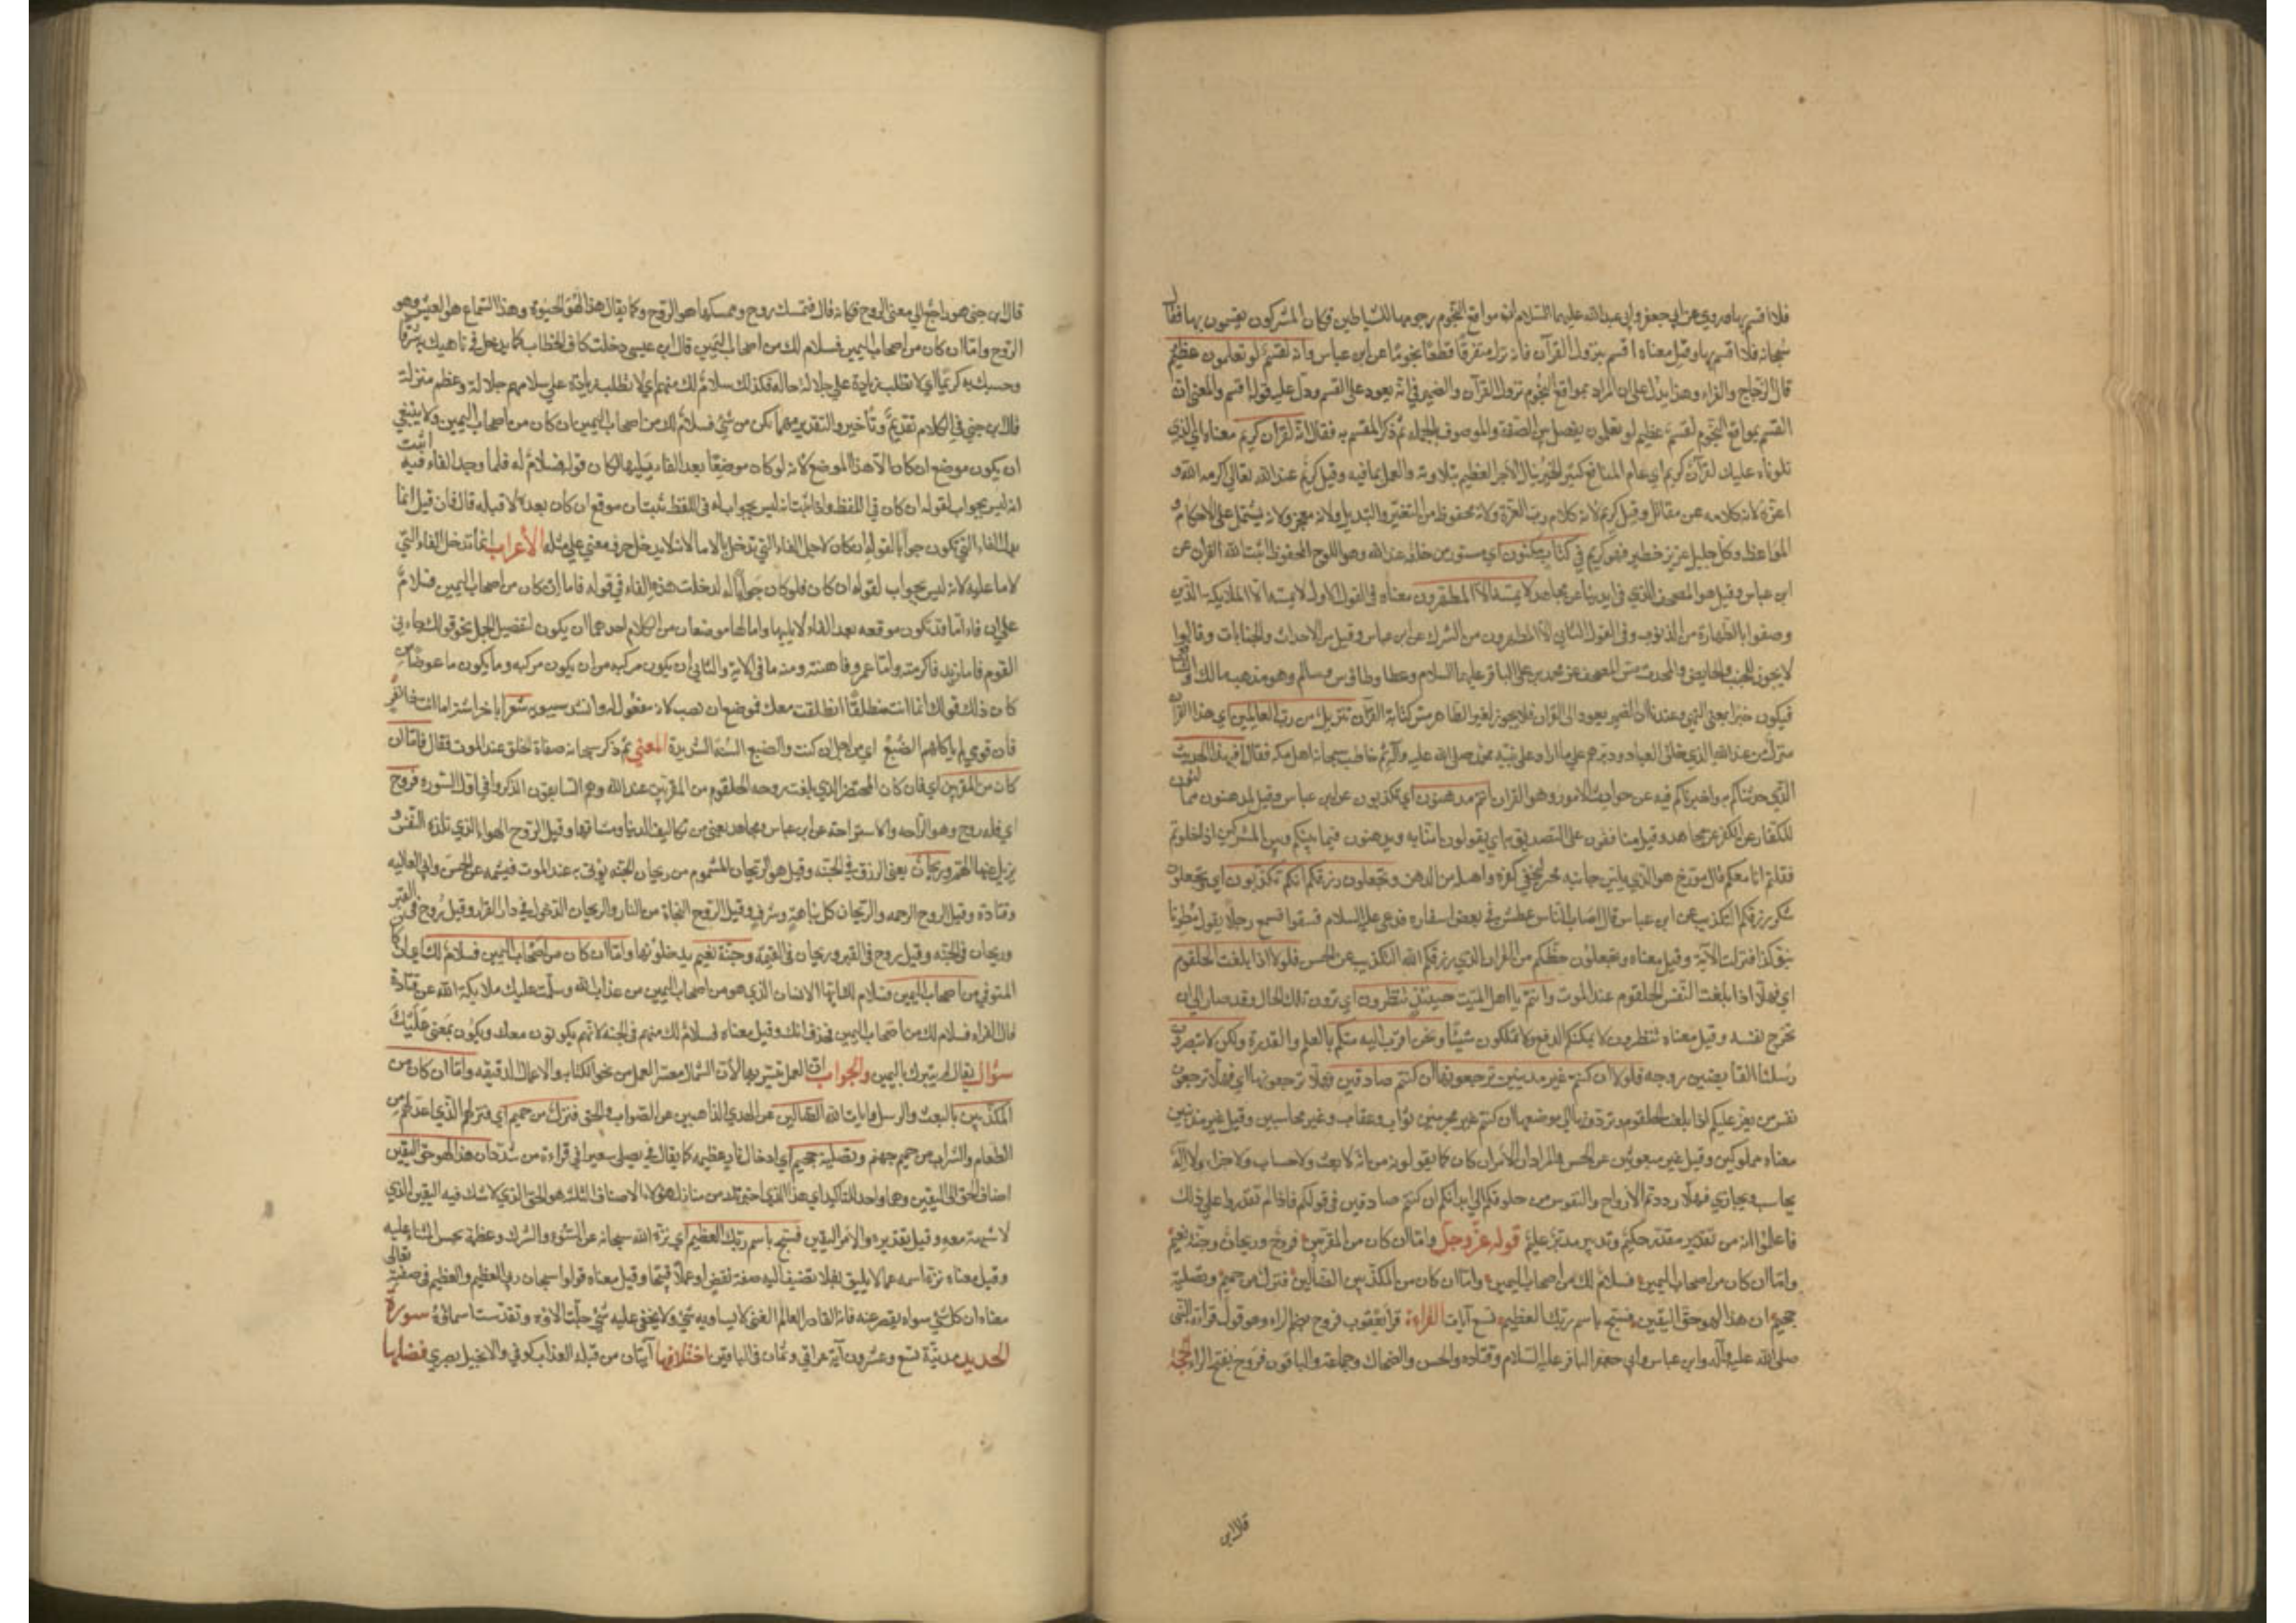 فلا اقسم بها وروي عن ابي جعفر وابي عبد الله عليهما السلام ان مواقع النجوم رجومها للشياطين فكان المشركون يقسمون بها فقال
سبحانه فلا اقسم بها وقيل معناه اقسم بنزول القرآن فانه نزل متفرقا قطعا نجوما عن ابن عباس وانه لقسم لو تعلمون عظيم
قال الزجاج والفراء وهذا يدل على ان المراد بمواقع النجوم نزول القرآن والضمير في انه يعود على القسم ودل عليه قوله اقسم والمعنى ان
القسم بمواقع النجوم لقسم عظيم لو تعلمون يفصل بين الصفة والموصوف بالجملة ثم ذكر المقسم به فقال انه لقرآن كريم معناه ان الذي
تلوناه عليك لقرآن كريم اي عام المنافع كثير الخير ينال الاجر العظيم بتلاوته والعمل بما فيه وقيل كريم عند الله تعالى اكرمه الله و
اعزه لانه كلامه عن مقاتل وقيل كريم لانه كلام رب العزة ولانه محفوظ من التغيير والتبديل ولانه معجز ولانه يشتمل على الاحكام و
المواعظ وكل جليل عزيز خطير فهو كريم في كتاب مكنون اي مستور من خلقه عند الله وهو اللوح المحفوظ اثبت الله القرآن عن
ابن عباس وقيل هو المصحف الذي في ايدينا عن مجاهد لا يمسه الا المطهرون معناه في القول الاول لا يمسه الا الملائكة الذين
وصفوا بالطهارة من الذنوب وفي القول الثاني الا المطهرون من الشرك عن ابن عباس وقيل من الاحداث والجنابات وقالوا
لا يجوز للجنب والحايض والمحدث مس المصحف عن محمد بن علي الباقر عليهما السلام وعطا وطاوس وسالم وهو مذهب مالك والشافعي
فيكون خبرا بمعنى النهي وعندنا ان الضمير يعود الى القرآن فلا يجوز لغير الطاهر مس كتابة القرآن تنزيل من رب العالمين اي هذا القرآن
منزل من عند الله الذي خلق العباد ودبرهم على ما اراد على نبيه محمد صلى الله عليه وآله ثم خاطب سبحانه اهل مكة فقال افبهذا الحديث
الذي حدثناكم به واخبرناكم فيه عن حوادث الامور وهو القران انتم مدهنون اي مكذبون عن ابن عباس وقيل مدهنون ممالئون
للكفار على الكفر عن مجاهد وقيل منافقون على التصديق به اي يقولون امنا به ويدهنون فيما بينكم وبين المشركين اذا خلوتم
فقلتم انا معكم قال مورج هو الذي يلين جانبه ليخفي كفره واصله من الدهن وتجعلون رزقكم انكم تكذبون اي وتجعلون
شكر رزقكم التكذيب عن ابن عباس قال اصاب الناس عطش في بعض اسفاره فدعى عليه السلام فسقوا فسمع رجلا يقول مطرنا
بنوء كذا فنزلت الآية وقيل معناه وتجعلون حظكم من القران الذي رزقكم الله التكذيب عن الحسن فلولا اذا بلغت الحلقوم
اي فهلا اذا بلغت النفس الحلقوم عند الموت وانتم يا اهل الميت حينئذ تنظرون اي ترون تلك الحال وقد صار الى ان
تخرج نفسه وقيل معناه تنظرون لا يمكنكم الدفع ولا تملكون شيئا ونحن اقرب اليه منكم بالعلم والقدرة ولكن لا تبصرون
رسلنا القابضين روحه فلولا ان كنتم غير مدينين ترجعونها ان كنتم صادقين فهلا ترجعونها اي فهلا ترجعون
نفس من يعز عليكم اذا بلغت الحلقوم وتردونها الى موضعها ان كنتم غير مجزيين بثواب وعقاب وغير محاسبين وقيل غير مدينين
معناه مملوكين وقيل غير مبعوثين عن الحسن والمراد ان الامر ان كان كما يقولونه من انه لا بعث ولا حساب ولا جزاء ولا اله
يحاسب ويجازي فهلا رددتم الارواح والنفوس من حلوقكم الى ابدانكم ان كنتم صادقين في قولكم فاذا لم تقدروا على ذلك
فاعلموا انه من تقدير مقدر حكيم وتدبير مدبر عليم قوله عز وجل واما ان كان من المقربين فروح وريحان وجنة نعيم
واما ان كان من اصحاب اليمين فسلام لك من اصحاب اليمين واما ان كان من المكذبين الضالين فنزل من حميم وتصلية
جحيم ان هذا لهو حق اليقين فسبح باسم ربك العظيم تسع آيات القراءة قرأ يعقوب فروح بضم الراء وهو قول قراءة النبي
صلى الله عليه وآله وابن عباس وابي جعفر الباقر عليه السلام وقتاده والحسن والضحاك وجماعة والباقون فروح بفتح الراء الحجة
قال ابن
قال ابن جني هو راجع الى معنى الروح فكانه قال فتمسك روح وممسكها هو الروح وكما يقال هذا الهواء هو الحيوة وهذا السماع هو العيش وهو
الروح واما ان كان من اصحاب اليمين فسلام لك من اصحاب اليمين قال ابن عيسى دخلت كاف الخطاب كما يدخل في ناهيك به شرفا
وحسبك به كريما اي لا تطلب زيادة على جلالة حاله فكذلك سلام لك منهم اي لا تطلب زيادة على سلامهم جلالة وعظم منزلة
قال ابن جني في الكلام تقديم وتأخير والتقدير مهما يكن من شئ فسلام لك من اصحاب اليمين ان كان من اصحاب اليمين ولا ينبغي
ان يكون موضع ان كان الا هذا الموضع لانه لو كان موضعها بعد الفاء يليها لكان قوله فسلام له فلما وجد الفاء فيه ثبت
انه ليس بجواب لقوله ان كان في اللفظ واذا ثبت انه ليس بجواب له في اللفظ ثبت ان موقع ان كان بعده لا قبله قال فان قيل انما
الفاء التي تكون جوابا لقوله ان كان لاجل الفاء التي تدخل بالاما لانه لا يدخل حرف معنى على مثله الأعراب انما تدخل الفاء التي
لاما عليه لانه ليس بجواب لقوله ان كان فلو كان جوابا له لدخلت هذه الفاء في قوله فاما ان كان من اصحاب اليمين فسلام
على ان فاء اما قد تكون موقعه بعد الفاء لا يليها واما لها موضعان من الكلام احدهما ان يكون لتفصيل الجمل نحو قولك جاءني
القوم فاما زيد فاكرمته واما عمرو فاهنته ومنه ما في الآية والثاني ان يكون مركبه من ان يكون مركبه وما يكون ما عوضا من
كان ذلك قولك اما انت منطلقا انطلقت معك فموضع ان نصب لانه مفعول له وانشد سيبويه شعر ابا خراشة اما انت ذا نفر
فان قومي لم يأكلهم الضبع اي من اجل ان كنت والضبع السنة الشديدة المعنى ثم ذكر سبحانه صفات الخلق عند الموت فقال فاما ان
كان من المقربين اي فان كان المحتضر الذي بلغت روحه الحلقوم من المقربين عند الله وهم السابقون الذين ذكروا في اول السورة فروح
اي فله روح وهو الراحه والاستراحة عن ابن عباس ومجاهد يعني من تكاليف الدنيا ومشاقها وقيل الروح الهواء الذي تلذه النفس و
يزيل عنها الهم وريحان يعني الرزق في الجنة وقيل هو الريحان المشموم من ريحان الجنه يؤتى به عند الموت فيشمه عن الحسن وابي العاليه
وقتادة وقيل الروح الرحمه والريحان كل نباهة وشرف وقيل الروح النجاة من النار والريحان الدخول في دار القرار وقيل روح في القبر
وريحان في الجنه وقيل روح في القبر وريحان في القيمة وجنة نعيم يدخلونها واما ان كان من اصحاب اليمين فسلام لك اي ان كان
المتوفى من اصحاب اليمين فسلام لك ايها الانسان الذي هو من اصحاب اليمين من عذاب الله وسلمت عليك ملائكة الله عن قتادة
قال الفراء فسلام لك من اصحاب اليمين فحذف انك وقيل معناه فسلام لك منهم في الجنة لانهم يكونون معك ويكون بمعنى عليك
سؤال يقال لم يتبرك باليمين والجواب ان العمل متيسر بها لان الشمال معتسر العمل من نحو الكتاب والاعمال الدقيقه واما ان كان من
المكذبين بالبعث والرسل وايات الله الضالين عن الهدى الذاهبين عن الصواب والحق فنزل من حميم اي فنزلهم الذي اعد لهم من
الطعام والشراب من حميم جهنم وتصلية جحيم اي ادخال نار عظيمه كما يقال في يصلى سعيرا في قراءة من شدد ان هذا لهو حق اليقين
اضاف الحق الى اليقين وهما واحد للتأكيد اي هذا الذي اخبرتك من منازل هؤلاء الاصناف الثلثه هو الحق الذي لا شك فيه اليقين الذي
لا شبهة معه وقيل تقديره والامر اليقين فسبح باسم ربك العظيم اي نزه الله سبحانه عن السوء والشرك وعظمه بحسن الثناء عليه
وقيل معناه نزه اسمه عما لا يليق به فلا تضيف اليه صفة نقص او عملا قبيحا وقيل معناه قولوا سبحان ربي العظيم والعظيم في صفته تعالى
معناه ان كل شئ سواه يقصر عنه فانه القادر العالم الغني لا يساويه شئ ولا يخفى عليه شئ جلت آلاؤه وتقدست اسماؤه سورة
الحديد مدنية تسع وعشرون آية عراقي وثمان في الباقين اختلافها آيتان من قبله العذاب كوفي والانجيل بصري فضلها